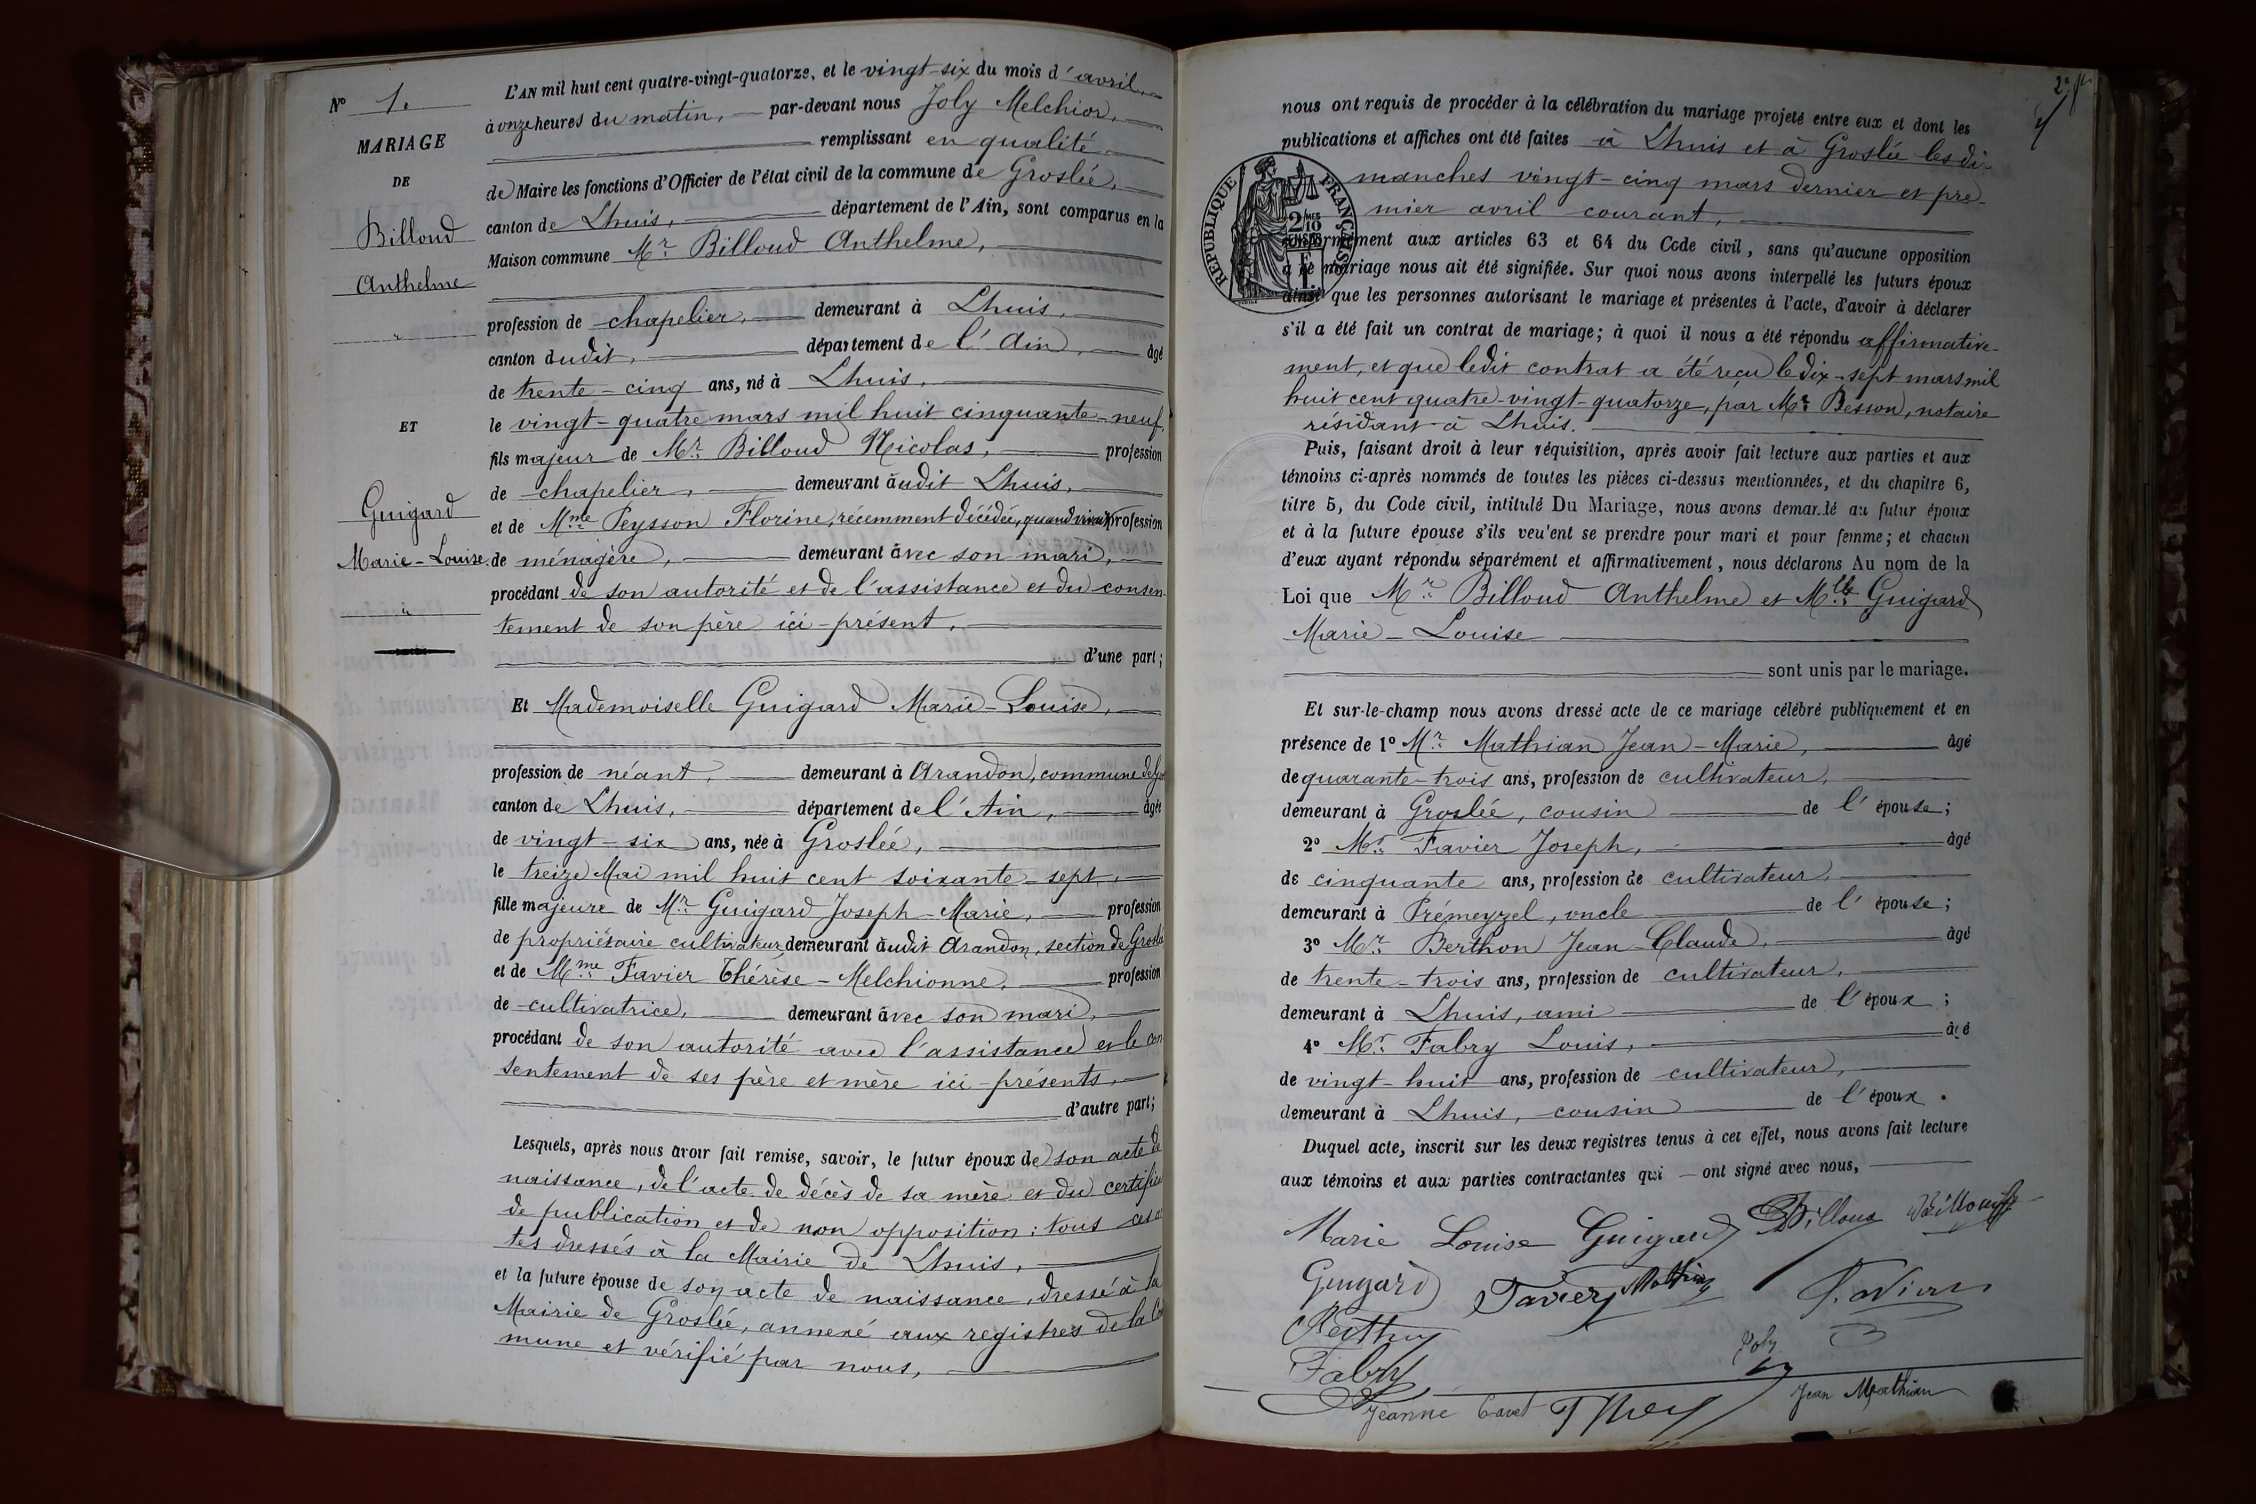 L'AN mil huit cent quatre-vingt-quatorze, et le vingt-six du mois d'avril,
N° 1.
à onze heures du matin, par-devant nous Joly Melchior,
MARIAGE
remplissant en qualité
DE
de Maire les fonctions d'Officier de l'état civil de la commune de Groslée,
Billoud
canton de Lhuis, département de l'Ain, sont comparus en la
Maison commune Mr Billoud Anthelme,
Anthelme
profession de chapelier, demeurant à Lhuis,
canton dudit, département de l'Ain, âgé
de trente-cinq ans, né à Lhuis,
ET
le vingt-quatre mars mil huit cinquante-neuf,
fils majeur de Mr Billoud Nicolas, profession
de chapelier, demeurant àudit Lhuis,
Guigard
et de Mme Peysson Florine, récemment décédée, quand vivait profession
Marie-Louise.
de ménagère, demeurant avec son mari,
procédant de son autorité et de l'assistance et du consen-
tement de son père ici-présent,
d'une part;
Et Mademoiselle Guigard Marie-Louise,
profession de néant, demeurant à Arandon, commune de
canton de Lhuis, département de l'Ain, âgée
de vingt-six ans, née à Groslée,
le treize Mai mil huit cent soixante-sept,
fille majeure de Mr Guigard Joseph-Marie, profession
de propriétaire cultivateur demeurant àudit Arandon, section de Groslée
et de Mme Favier Thérèse-Melchionne, profession
de cultivatrice, demeurant avec son mari,
procédant de son autorité avec l'assistance et le con
sentement de ses père et mère ici-présents,
d'autre part;
Lesquels, après nous avoir fait remise, savoir, le futur époux de son acte de
naissance, de l'acte de décès de sa mère et du certificat
de publication et de non opposition; tous ces ac
tes dressés à la Mairie de Lhuis,
et la future épouse de son acte de naissance, dressé à la
Mairie de Groslée, annexé aux registres de la Com
mune et vérifié par nous,
2e
nous ont requis de procéder à la célébration du mariage projeté entre eux et dont les
publications et affiches ont été faites à Lhuis et à Groslée les di-
manches vingt-cinq mars dernier et pre-
mier avril courant,
RÉPUBLIQUE FRANÇAISE
2/10
conformément aux articles 63 et 64 du Code civil, sans qu'aucune opposition
à ce mariage nous ait été signifiée. Sur quoi nous avons interpellé les futurs époux
ainsi que les personnes autorisant le mariage et présentes à l'acte, d'avoir à déclarer
s'il a été fait un contrat de mariage; à quoi il nous a été répondu affirmative-
ment, et que ledit contrat a été reçu le dix-sept mars mil
huit cent quatre-vingt-quatorze, par Me Besson, notaire
résidant à Lhuis.
Puis, faisant droit à leur réquisition, après avoir fait lecture aux parties et aux
témoins ci-après nommés de toutes les pièces ci-dessus mentionnées, et du chapitre 6,
titre 5, du Code civil, intitulé Du Mariage, nous avons demandé au futur époux
et à la future épouse s'ils veulent se prendre pour mari et pour femme; et chacun
d'eux ayant répondu séparément et affirmativement, nous déclarons Au nom de la
Loi que Mr Billoud Anthelme et Mlle Guigard
Marie-Louise
sont unis par le mariage.
Et sur-le-champ nous avons dressé acte de ce mariage célébré publiquement et en
présence de 1° Mr Mathian Jean-Marie, âgé
de quarante-trois ans, profession de cultivateur,
demeurant à Groslée, cousin de l'épouse;
2° Mr Favier Joseph, âgé
de cinquante ans, profession de cultivateur,
demeurant à Prémeyzel, oncle de l'épouse;
3° Mr Berthon Jean-Claude, âgé
de trente-trois ans, profession de cultivateur,
demeurant à Lhuis, ami de l'époux;
4° Mr Fabry Louis, âgé
de vingt-huit ans, profession de cultivateur,
demeurant à Lhuis, cousin de l'époux.
Duquel acte, inscrit sur les deux registres tenus à cet effet, nous avons fait lecture
aux témoins et aux parties contractantes qui ont signé avec nous,
Marie Louise Guigard Billoud Billoud
Guigard Favier Mathian
Fabry
Joly
Jeanne Jean Mathian